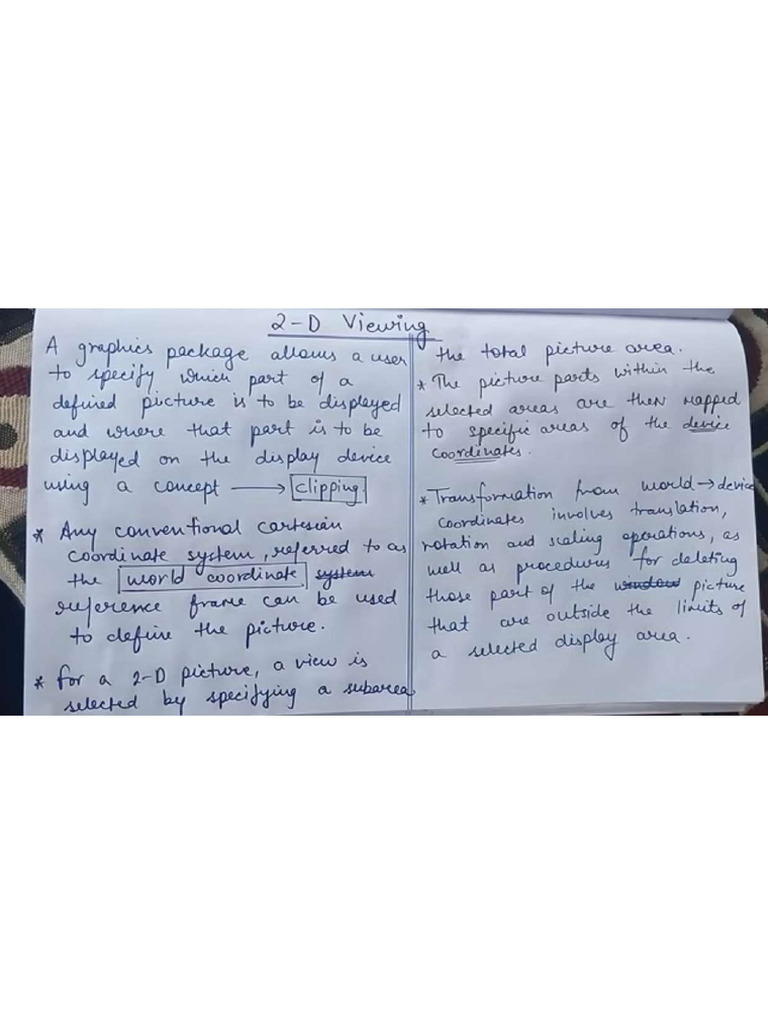 2-D Viewing
A graphics package allows a user
to specify which part of a
defined picture is to be displayed
and where that part is to be
displayed on the display device
using a concept → clipping
* Any conventional cartesian
coordinate system, referred to as
the world coordinate system
reference frame can be used
to define the picture.
* for a 2-D picture, a view is
selected by specifying a subarea
the total picture area.
* The picture parts within the
selected areas are then mapped
to specific areas of the device
coordinates.
* Transformation from world → device
coordinates involves translation,
rotation and scaling operations, as
well as procedures for deleting
those part of the window picture
that are outside the limits of
a selected display area.